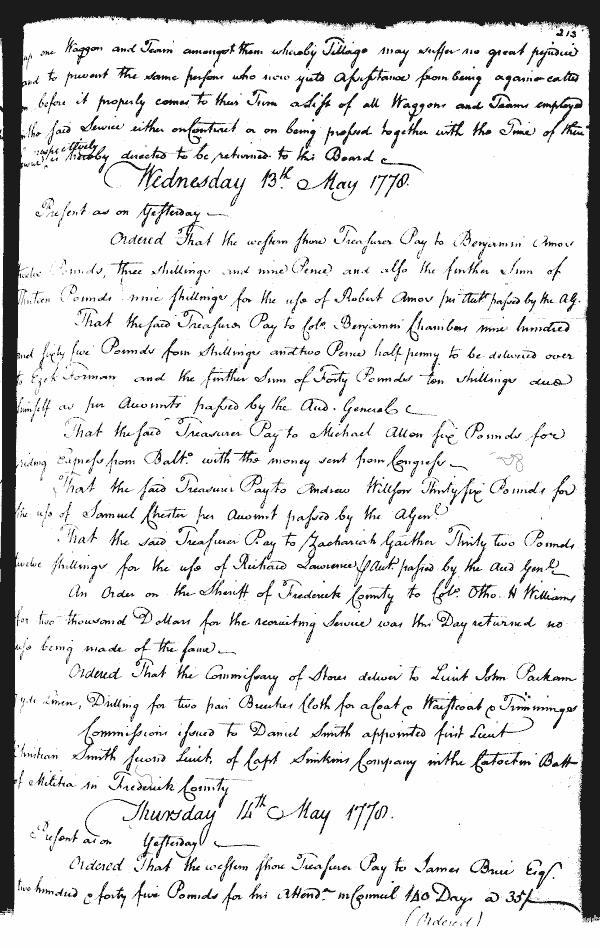 213
up one Waggon and Team amongst them whereby Tillage may suffer no great prejudice
and to prevent the same persons who now yield assistance from being again called
before it properly comes to their Turn a List of all Waggons and Teams employed
in the said Service either on Contract or on being pressed together with the Time of their
respectively
is hereby directed to be returned to this Board
Wednesday 13th May 1778.
Present as on Yesterday
Ordered That the western shore Treasurer Pay to Benjamin Amos
twelve Pounds, three shillings and nine Pence and also the further Sum of
Thirteen Pounds nine shillings for the use of Robert Amos per Acct. passed by the A.G.
That the said Treasurer Pay to Colo. Benjamin Chambers nine hundred
and sixty five Pounds four shillings and two Pence half penny to be delivered over
to Ezek Forman and the further Sum of Forty Pounds ten shillings due
himself as per Accounts passed by the Aud. General
That the said Treasurer Pay to Michael Allen six Pounds for
riding Express from Balto. with the money sent from Congress
That the said Treasurer Pay to Andrew Willson Thirty six Pounds for
the use of Samuel Chester per Account passed by the A Genl.
That the said Treasurer Pay to Zachariah Gaither Thirty two Pounds
twelve shillings for the use of Richard Lawrence p Acct. passed by the Aud Genl.
An Order on the Sheriff of Frederick County to Colo. Otho. H Williams
for two thousand Dollars for the recruiting Service was this Day returned no
use being made of the same
Ordered That the Commissary of Stores deliver to Lieut John Parham
Hyde Linen, Drilling for two pair Breeches Cloth for a Coat & Waistcoat & Trimmings
Commissions issued to Daniel Smith appointed first Lieut
Christian Smith second Lieut. of Capt Simkins Company in the Catoctin Batt
of Militia in Frederick County
Thursday 14th May 1778.
Present as on Yesterday
Ordered That the western shore Treasurer Pay to James Brice Esqr.
two hundred & forty five Pounds for his Attendce. in Council 140 Days @ 35/
(Ordered)